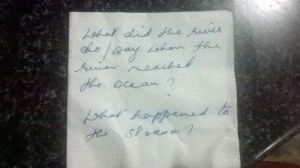 What did the river
do/say when the
river reached
the ocean?
What happened to
the stream?